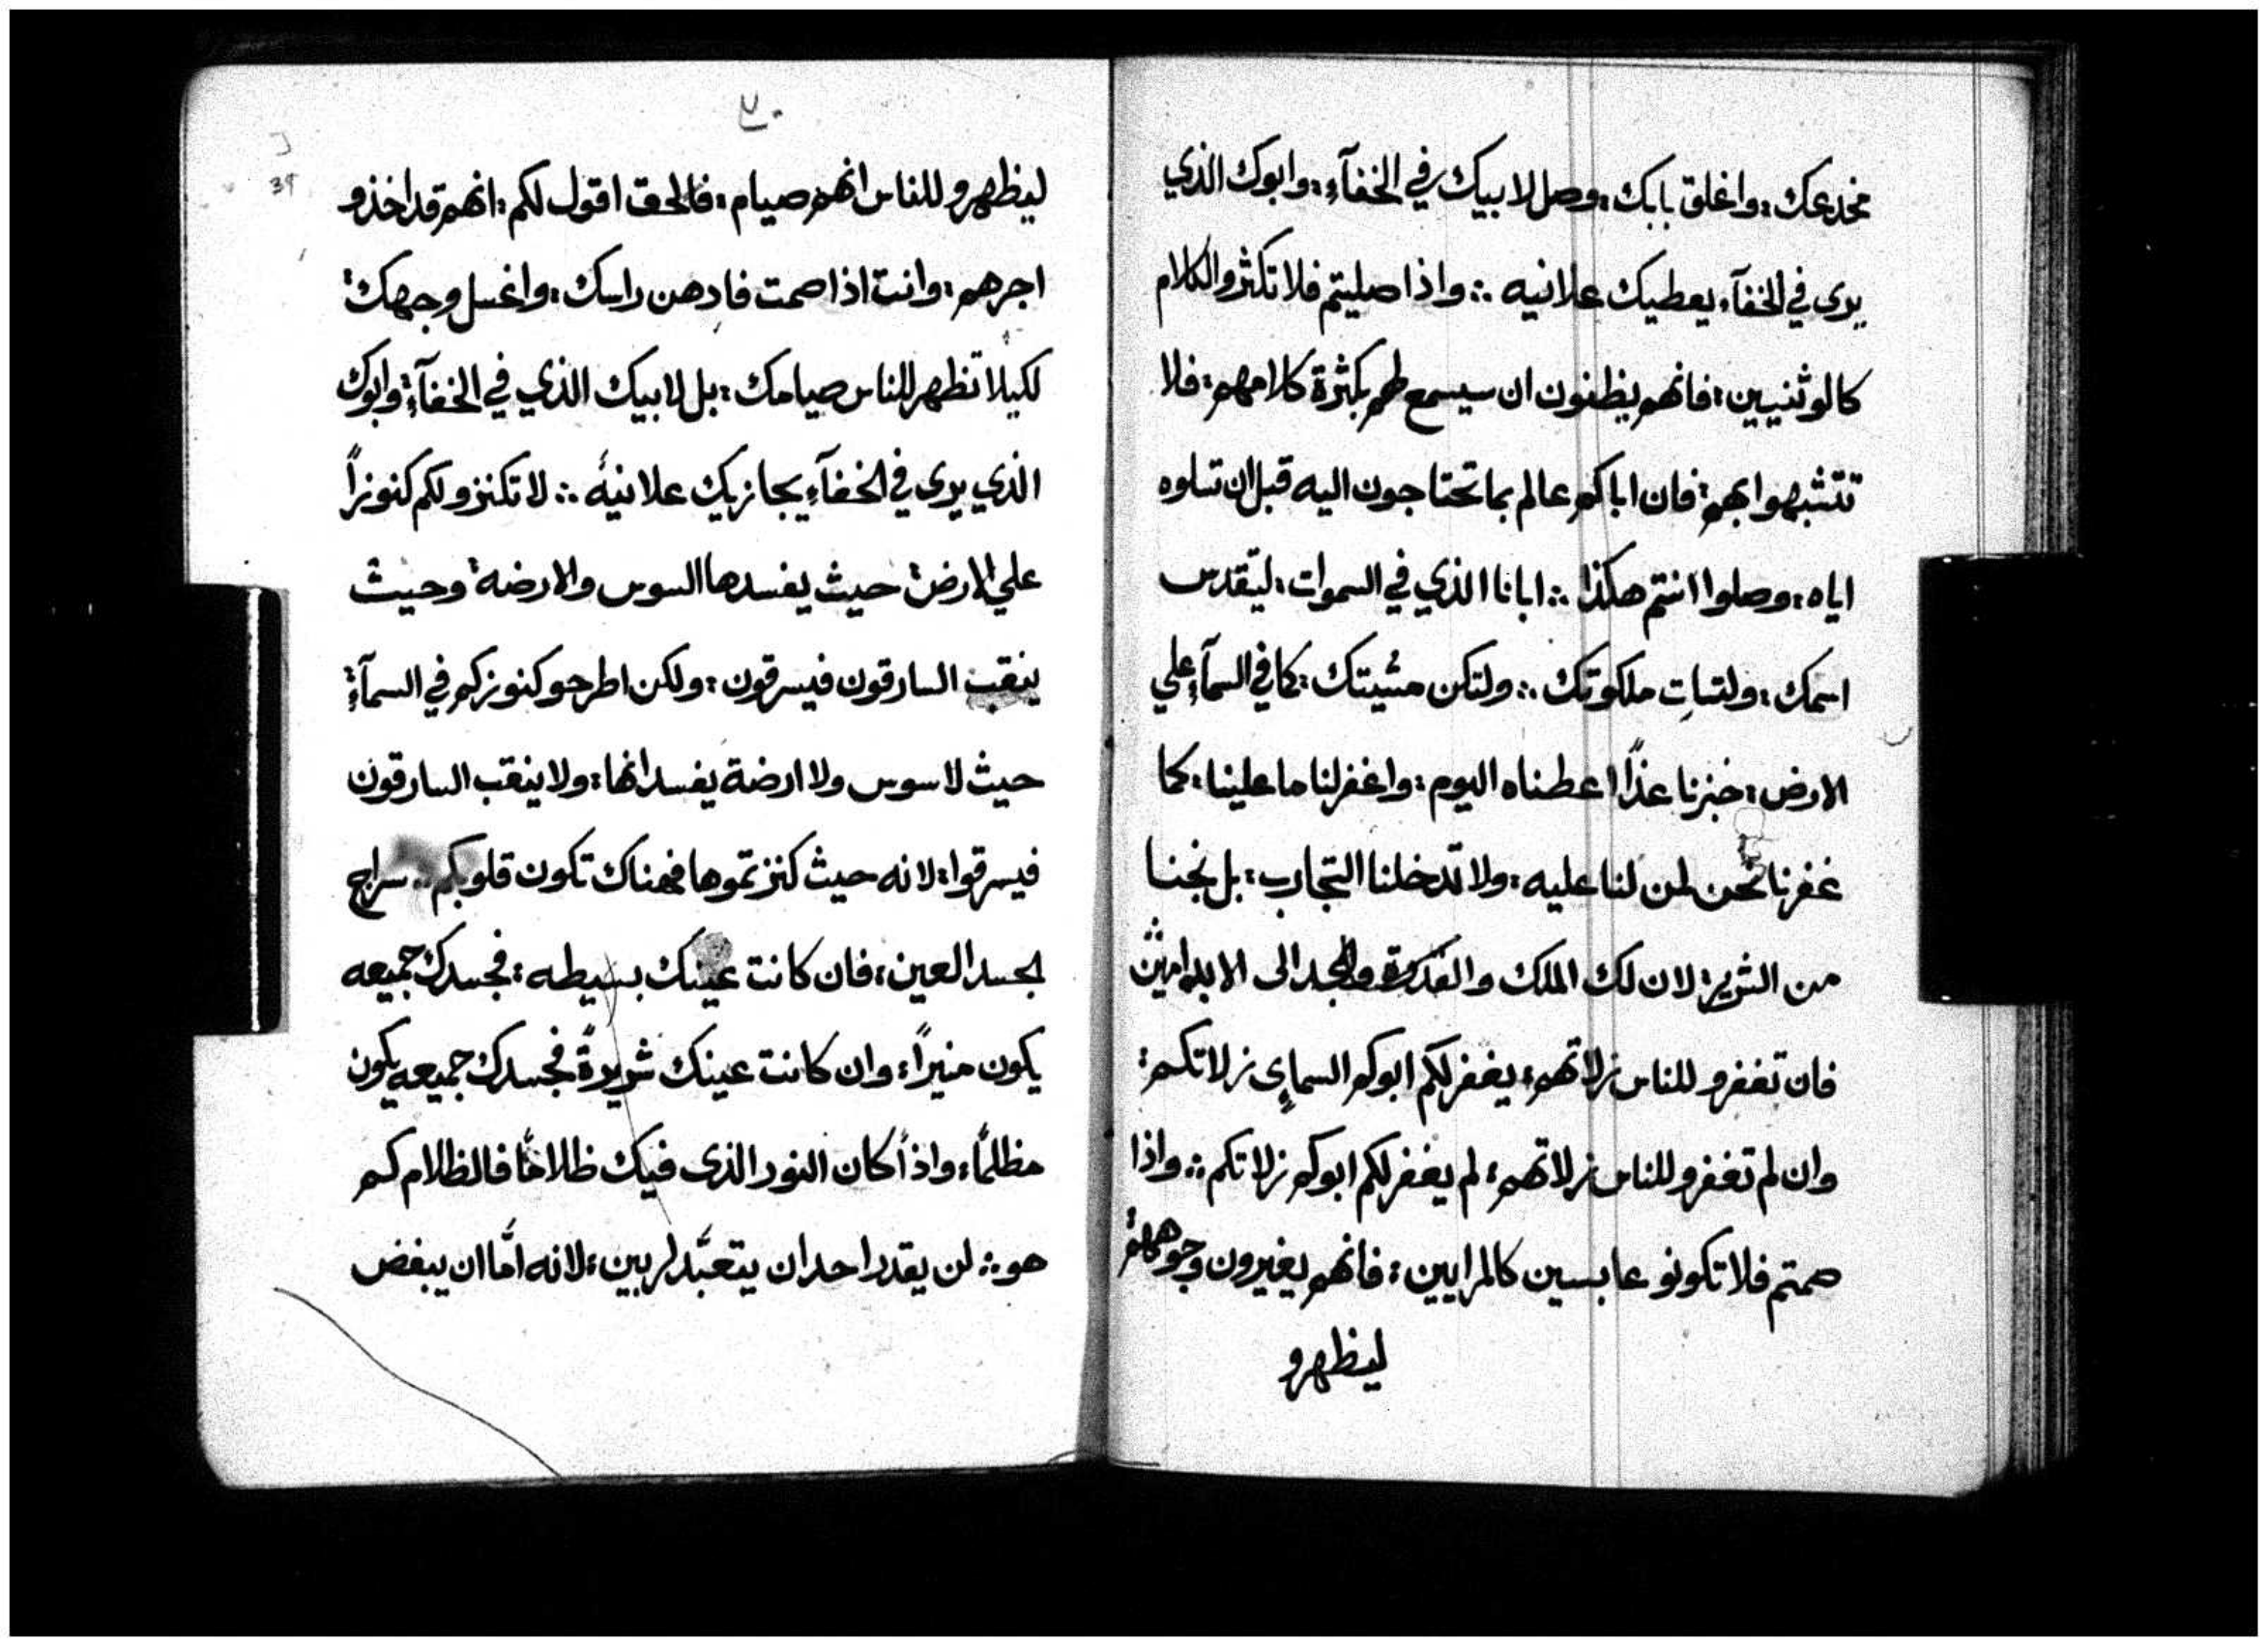 مخدعك: واغلق بابك: وصل لابيك في الخفآءِ: وابوك الذي
يرى في الخفآء يعطيك علانيه ∴ واذا صليتم فلا تكثرو الكلام
كالوثنيين: فانهم يظنون ان سيسمع لهم بكثرة كلامهم: فلا
تتشبهوا بهم: فان اباكم عالم بما تحتاجون اليه قبل ان تسلوه
اياه: وصلوا انتم هكذا ∴ ابانا الذي في السموات: ليتقدس
اسمك: ولتات ملكوتك ∴ ولتكن مشيتك: كما في السمآءِ علي
الارض: خبزنا غذًا اعطناه اليوم: واغفر لنا ما علينا: كما
غفرنا نحن لمن لنا عليه: ولا تدخلنا التجارب: بل نجنا
من الشرير: لان لك الملك والقدرة والمجد الى الابد امين
فان تغفرو للناس زلاتهم: يغفر لكم ابوكم السماي زلاتكم:
وان لم تغفرو للناس زلاتهم: لم يغفر لكم ابوكم زلاتكم ∴ واذا
صمتم فلا تكونو عابسين كالمرايين: فانهم يغيرون وجوههم
ليظهرو
٣٠
39
ليظهرو للناس انهم صيام: فالحق اقول لكم: انهم قد اخذو
اجرهم: وانت اذا صمت فادهن راسك: واغسل وجهك:
لكيلا تظهر للناس صيامك: بل لابيك الذي في الخفآءِ: وابوك
الذي يرى في الخفآءِ يجازيك علانيةً ∴ لا تكنزو لكم كنوزاً
علي الارض: حيث يفسدها السوس والارضة: وحيث
ينقب السارقون فيسرقون: ولكن اطرحو كنوزكم في السمآءِ:
حيث لا سوس ولا ارضة يفسدانها: ولا ينقب السارقون
فيسرقوا: لانه حيث كنزتموها فهناك تكون قلوبكم ∴ سراج
لجسد العين: فان كانت عينك بسيطه: فجسدك جميعه
يكون منيراً: وان كانت عينك شريرةً فجسدك جميعه يكون
مظلمًا: واذاً كان النور الذى فيك ظلامًا فالظلام كم
هو ∴ لن يقدر احد ان يتعبَّد لربين: لانه امَّا ان يبغض